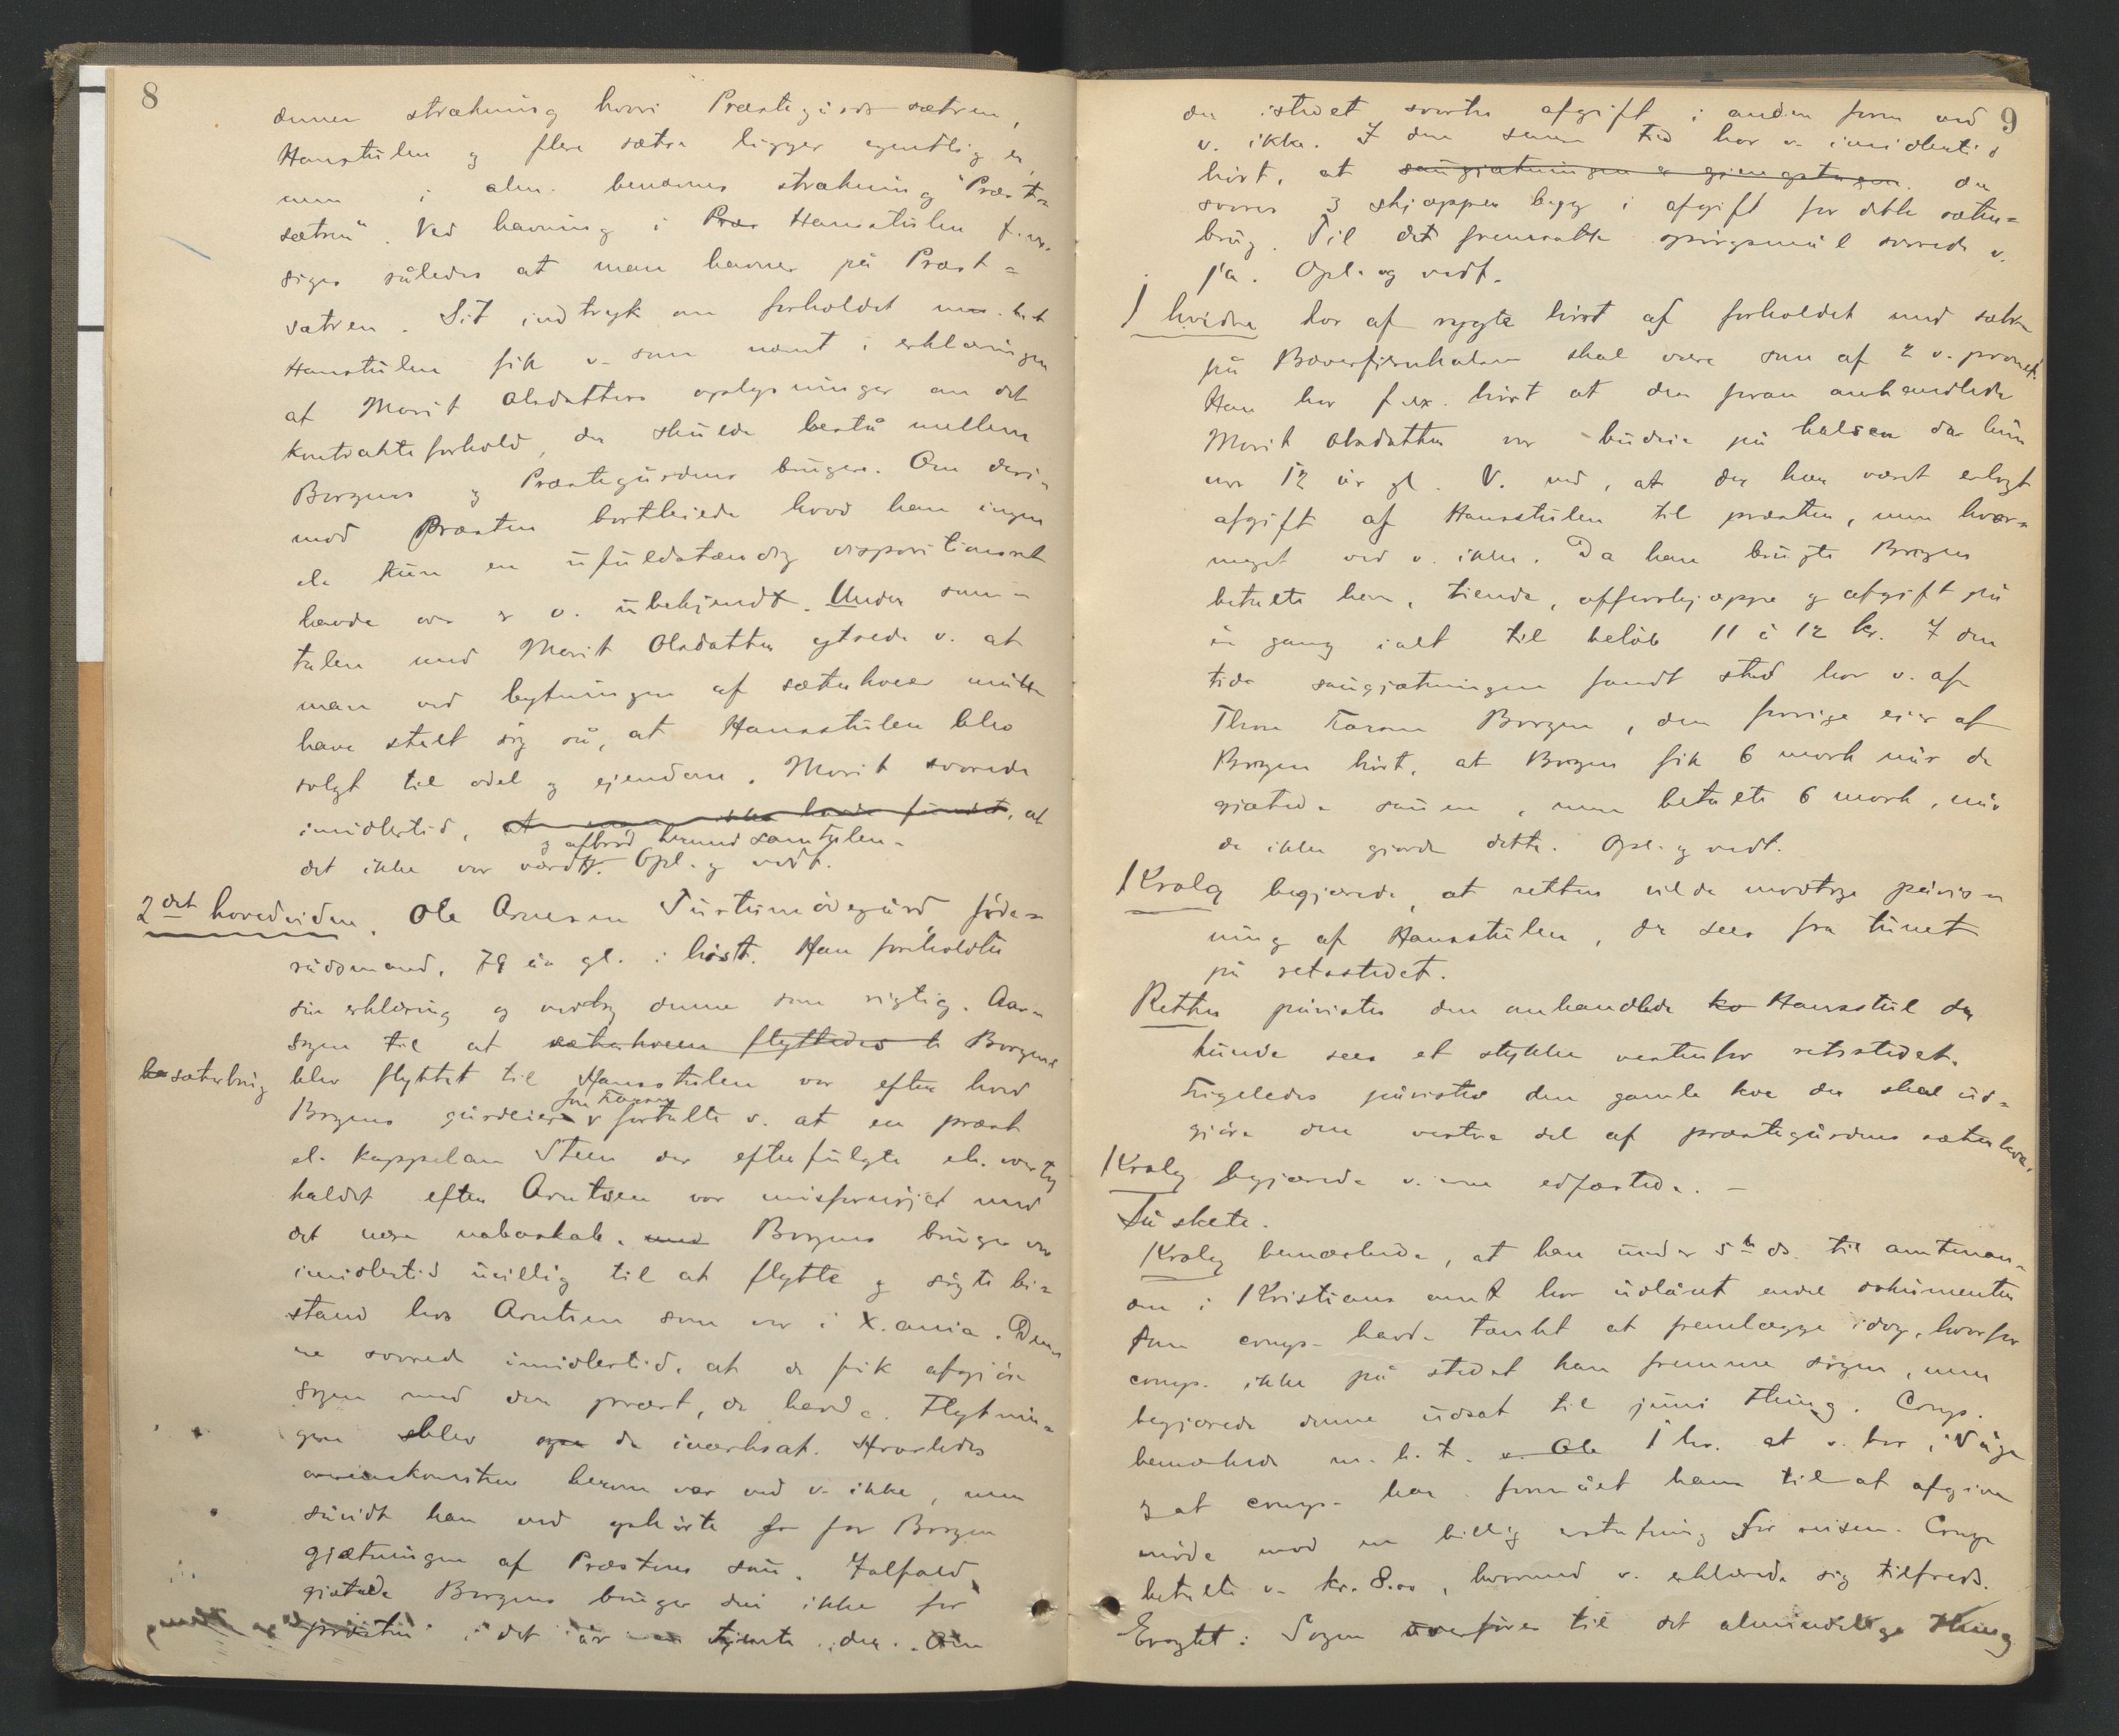 8
denne strækning hvori Præstegårds sætren,
Hansstulen og flere sætre ligger egentlig er,
men i alm. benævnes strækning "Præst=
sætren". Ved havning i Hansstulen f. ex.
siges således at man havner på Præst=
sætren. Sit indtryk om forholdet m. h. t.
Hansstulen fik v. som nævnt i erklæringen
af Marit Olsdatters oplysninger om det
kontraktsforhold, der skulde bestå mellem
Borgens og Præstegårdens brugere. Om deri=
mod Præsten bortleiede hvad han ingen
el. kun en ufuldstændig dispositionsret
havde over er v. ubekjendt. Under sam=
talen med Marit Olsdatter ytrede v. at
man ved bytningen af sæterhver måtte
have stelt sig så, at Hansstulen blev
solgt til odel og ejendom. Marit svarede
imidlertid, at man ikke havde fundet, at
og afbrød hermed samtalen.
det ikke var værdt. Opl. og vedt.
2det hovedvidne. Ole Arnesen Tustumødegård, føde=
rådsmand, 79 år gl. i høst. Han foreholdtes
sin erklæring og vedtog denne som rigtig. Aar=
sagen til at sæterhveen flyttedes Borgens
sæterbrug blev flyttet til Hansstulen var efter hvad
Borgens gårdeier fortalte v. at en præst
el. kappelan Steen der efterfulgte el. vær
holdt efter Arntzen var misfornøjet med
det nære naboskab. med Borgens bruger var
imidlertid uvillig til at flytte og søgte bi=
stand hos Arntzen som var i X.ania. Den=
ne svarede imidlertid, at de fik afgjøre
sagen med den præst, de havde. Flytnin=
gen blev da iværksat. Hvorledes
overenskomsten herom var ved v. ikke, men
såvidt han ved ophørte for Borgen
gjætningen af Præstens sau. Ialfald
gjætede Borgens bruger sau ikke for
præsten i det år v. tjente der. Om
9
der istedet svartes afgift i anden form ved
v. ikke. I den senere tid har v. imidlertid
hørt, at saugjætningen er gjengstagen. der
svares 3 skjæpper byg i afgift for dette sæter=
brug. Til det fremsatte spørgsmål svarede v.
ja. Opl. og vedt.
1 hvidne har af rygte hørt af forholdet med sætre
på Bæverfjernhalsen skal være som af 2 v. provet.
Han har f. ex. hørt at den foran anhandlede
Marit Olsdatter var budeie på halsen da hun
var 12 år gl. V. ved, at der har været erlagt
afgift af Hansstulen til præsten, men hvor=
meget ved v. ikke. Da han brugte Borgen
betalte han, tiende, offerskjæppe og afgift på
én gang ialt til beløb 11 à 12 kr. I den
tid saugjætningen fandt sted har v. af
Thore Borgen, den forrige eier af
Borgen hørt, at Borgen fik 6 mark når de
gjætede sauen, men betalte 6 mark, når
de ikke gjorde dette. Opl. og vedt.
Kralg begjærede, at retten vilde modtage påvis=
ning af Hansstulen, der sees fra tunet
på retsstedet.
Retten påvistes den anhandlede Hansstul der
kunde sees et stykke vestenfor retsstedet.
Ligeledes påvistes den gamle kve der skal ud=
gjøre den vestre del af præstegårdens sæterkve.
Kralg begjærede v.ene edfæstede. –
Så skete.
Kralg bemærkede, at han under 5te ds. til amtman=
den i Kristians amt har udlånt endel dokumenter
som comp. havde tænkt at fremlægge idag, hvorfor
comp. ikke på stedet kan fremme sagen, men
begjærede denne udsat til juni thing. Comp.
bemærkede m. h. t. 1 hv. at v. bor i Våge
og at comp. har formået ham til at afgive
møde mod en billig erstatning for reisen. Comp.
betalte v. kr. 8.00, hvormed v. erklærede sig tilfreds.
Eragtet: Sagen overføres til det almindelige thing